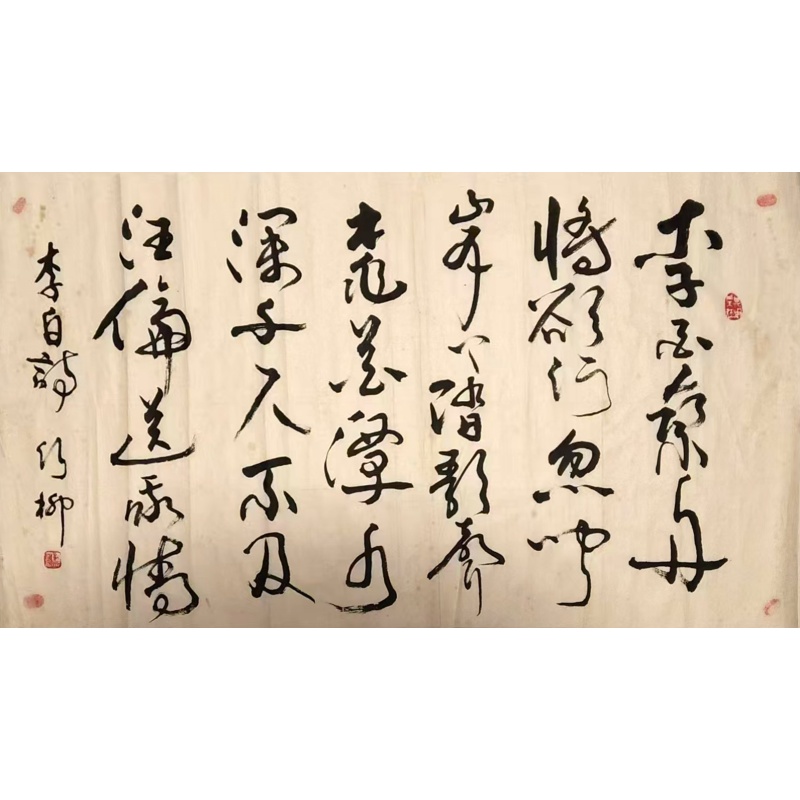 李白乘舟
將欲行忽聞
岸上踏歌聲
桃花潭水
深千尺不及
汪倫送我情
李白詩 柳